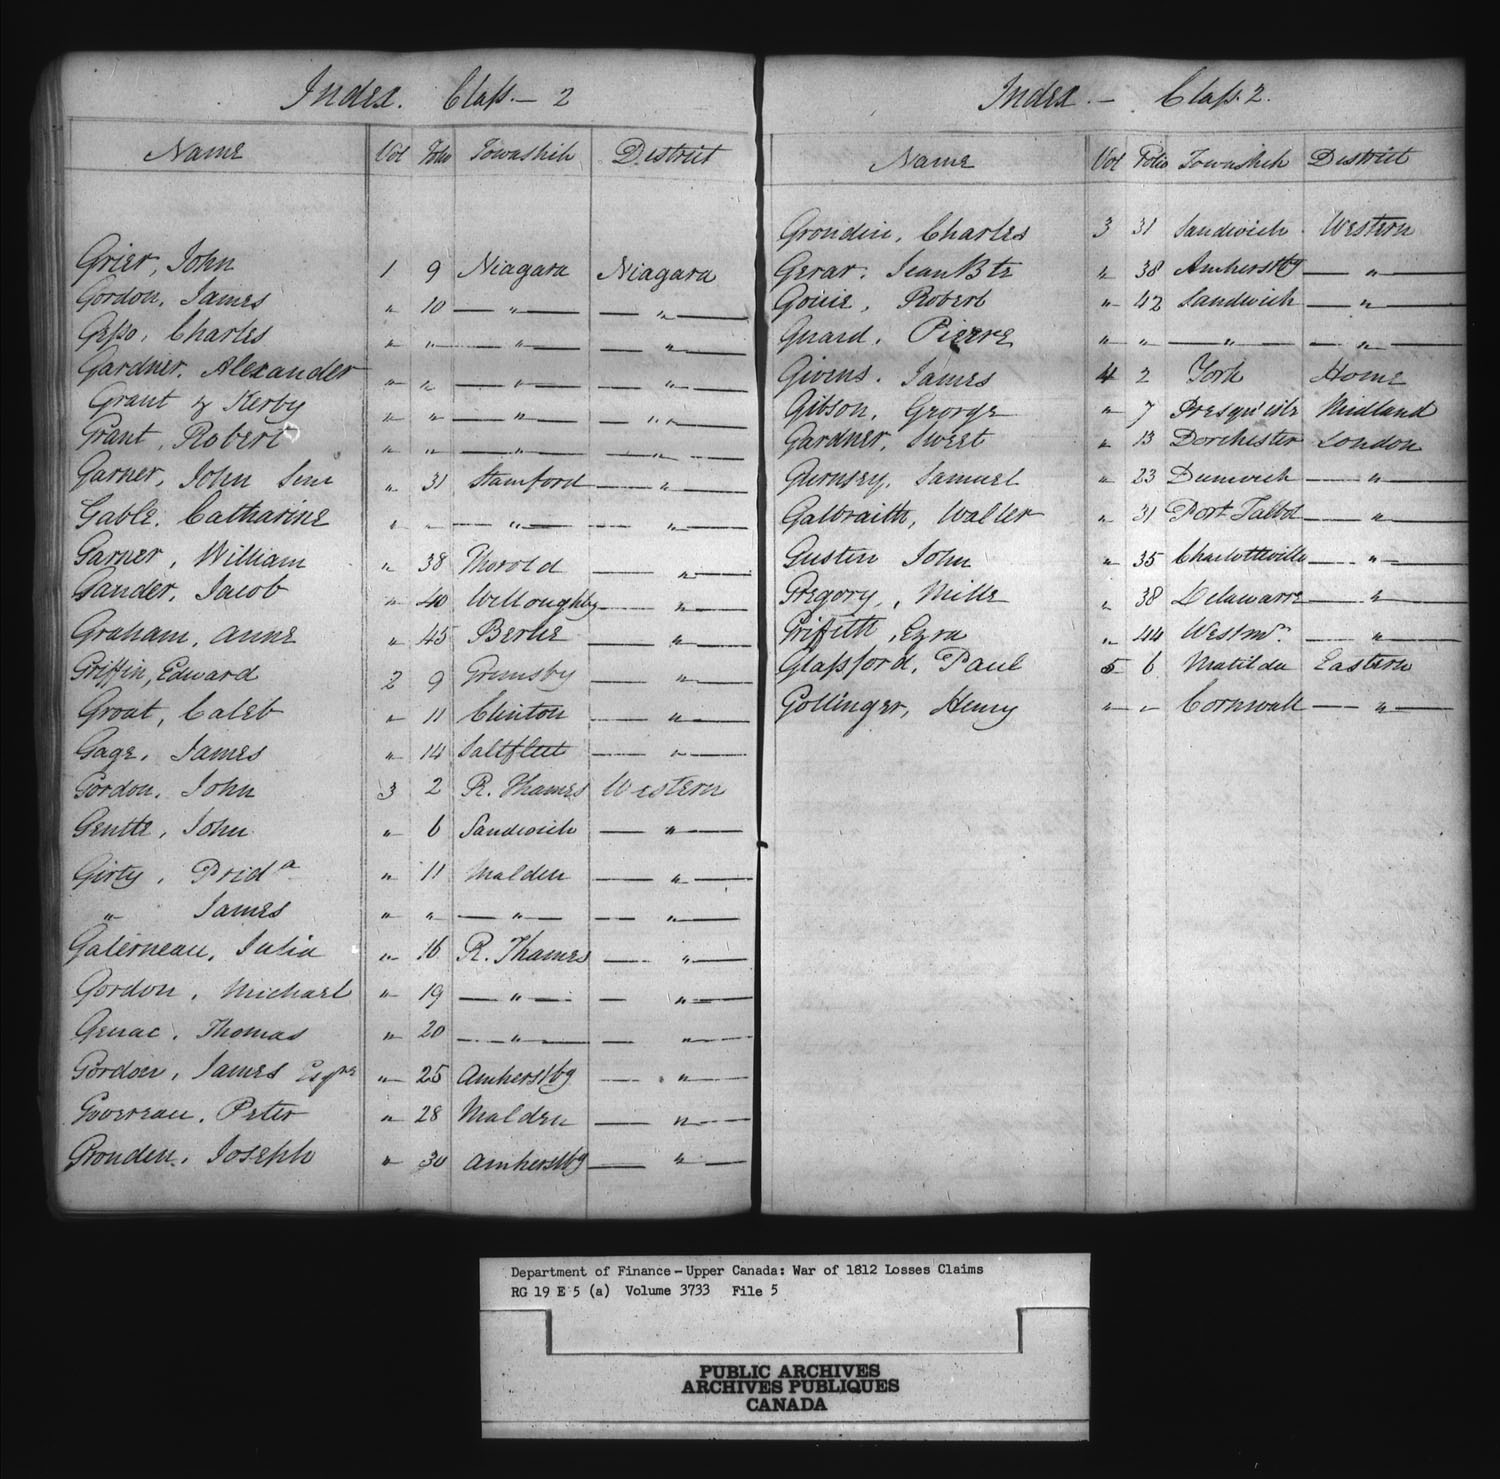 Index. Class. — 2
Name Vol Folio Township District
Grier, John 1 9 Niagara Niagara
Gordon, James " 10 — " — — " —
Gesso, Charles " " — " — — " —
Gardner. Alexander " " — " — — " —
Grant & Kerby " " — " — — " —
Grant, Robert " " — " — — " —
Garner, John Senr " 31 Stamford — " —
Gable. Catharine " " — " — — " —
Garner, William " 38 Thorold — " —
Gander, Jacob " 40 Willoughby — " —
Graham, Anne " 45 Bertie — " —
Griffin, Edward 2 9 Grimsby — " —
Groat, Caleb " 11 Clinton — " —
Gage, James " 14 Saltfleet — " —
Gordon, John 3 2 R. Thames Western
Gentle, John " 6 Sandwich — " —
Girty, Prid.a " 11 Malden — " —
" James " " — " — — " —
Galerneau, Julia " 16 R. Thames — " —
Gordon, Michael " 19 — " — — " —
Genac, Thomas " 20 — " — — " —
Gordon, James Esqre " 25 Amherstbg — " —
Govereau, Peter " 28 Malden — " —
Gronden, Joseph " 30 Amherstbg — " —
Index. — Class. 2.
Name Vol Folio Township District
Grondin, Charles 3 31 Sandwich. Western
Gerar. Jean Bte " 38 Amherstbg — " —
Gouie, Robert " 42 Sandwich — " —
Guard, Pierre " " — " — — " —
Givens. James 4 2 York Home
Gibson, George " 7 Presqu'isle Midland
Gardner, Sweet " 13 Dorchester London
Gurnsey, Samuel " 23 Dunwich — " —
Galbraith, Walter " 31 Port Talbot — " —
Gustin John " 35 Charlotteville — " —
Gregory, Mills " 38 Delawarre — " —
Griffith, Ezra " 44 Westmr. — " —
Glassford, Paul 5 6 Matilda Eastern
Gollinger, Henry " " Cornwall — " —
Department of Finance — Upper Canada: War of 1812 Losses Claims
RG 19 E 5 (a) Volume 3733 File 5
PUBLIC ARCHIVES
ARCHIVES PUBLIQUES
CANADA